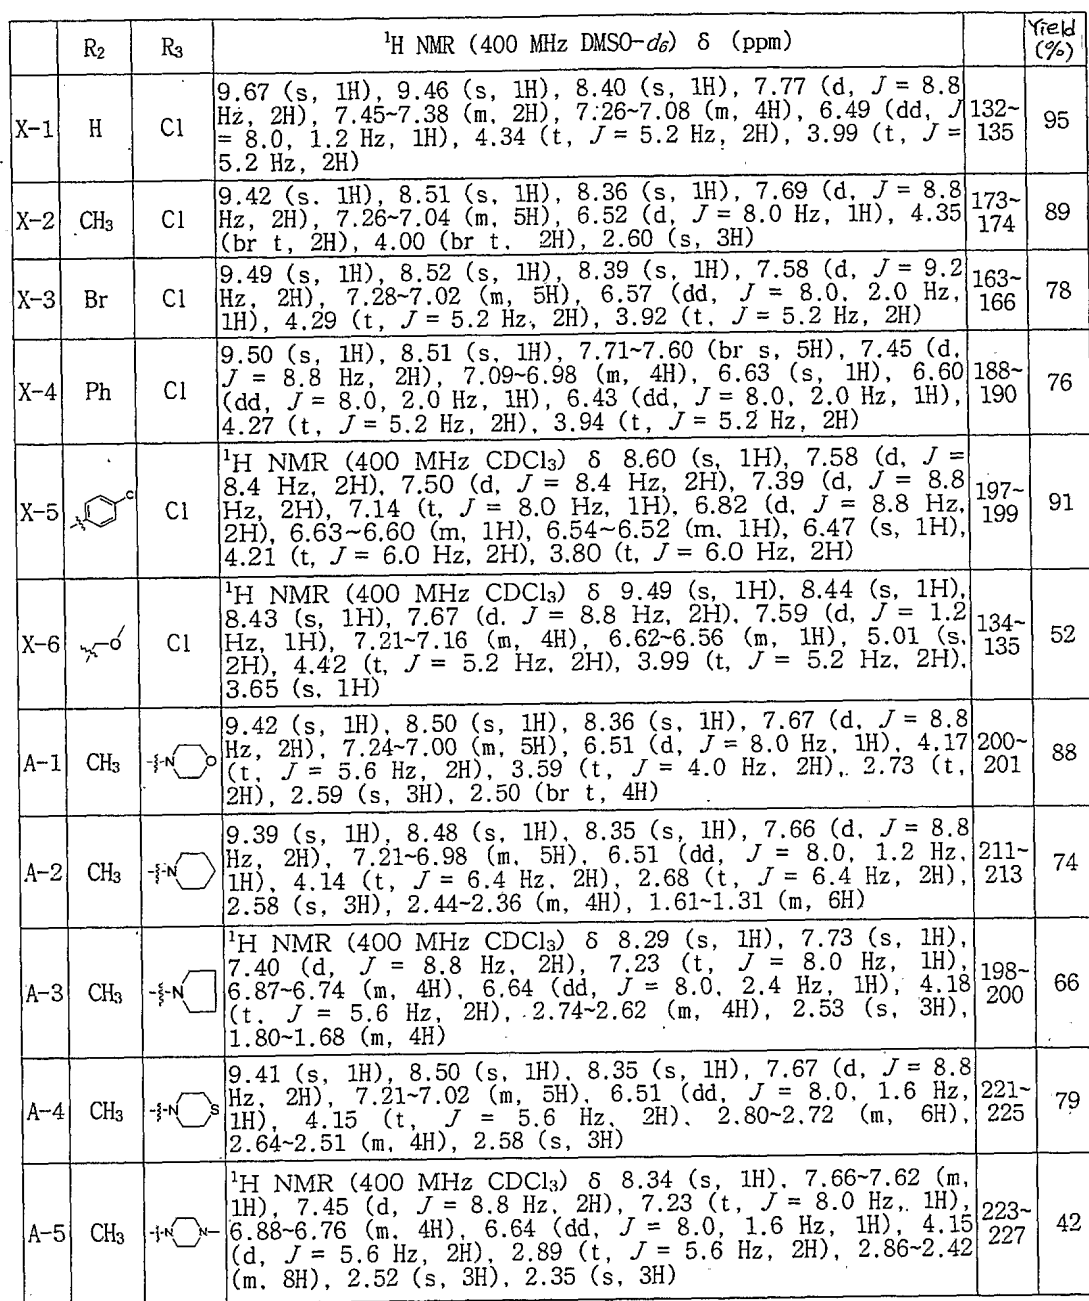 R₂ R₃ ¹H NMR (400 MHz DMSO-d₆) δ (ppm) Yield (%)
X-1 H Cl
9.67 (s, 1H), 9.46 (s, 1H), 8.40 (s, 1H), 7.77 (d, J = 8.8
Hz, 2H), 7.45~7.38 (m, 2H), 7.26~7.08 (m, 4H), 6.49 (dd, J
= 8.0, 1.2 Hz, 1H), 4.34 (t, J = 5.2 Hz, 2H), 3.99 (t, J =
5.2 Hz, 2H)
132~
135
95
X-2 CH₃ Cl
9.42 (s. 1H), 8.51 (s, 1H), 8.36 (s, 1H), 7.69 (d, J = 8.8
Hz, 2H), 7.26~7.04 (m, 5H), 6.52 (d, J = 8.0 Hz, 1H), 4.35
(br t, 2H), 4.00 (br t, 2H), 2.60 (s, 3H)
173~
174
89
X-3 Br Cl
9.49 (s, 1H), 8.52 (s, 1H), 8.39 (s, 1H), 7.58 (d, J = 9.2
Hz, 2H), 7.28~7.02 (m, 5H), 6.57 (dd, J = 8.0, 2.0 Hz,
1H), 4.29 (t, J = 5.2 Hz, 2H), 3.92 (t, J = 5.2 Hz, 2H)
163~
166
78
X-4 Ph Cl
9.50 (s, 1H), 8.51 (s, 1H), 7.71~7.60 (br s, 5H), 7.45 (d,
J = 8.8 Hz, 2H), 7.09~6.98 (m, 4H), 6.63 (s, 1H), 6.60
(dd, J = 8.0, 2.0 Hz, 1H), 6.43 (dd, J = 8.0, 2.0 Hz, 1H),
4.27 (t, J = 5.2 Hz, 2H), 3.94 (t, J = 5.2 Hz, 2H)
188~
190
76
X-5 Cl
¹H NMR (400 MHz CDCl₃) δ 8.60 (s, 1H), 7.58 (d, J =
8.4 Hz, 2H), 7.50 (d, J = 8.4 Hz, 2H), 7.39 (d, J = 8.8
Hz, 2H), 7.14 (t, J = 8.0 Hz, 1H), 6.82 (d, J = 8.8 Hz,
2H), 6.63~6.60 (m, 1H), 6.54~6.52 (m, 1H), 6.47 (s, 1H),
4.21 (t, J = 6.0 Hz, 2H), 3.80 (t, J = 6.0 Hz, 2H)
197~
199
91
X-6 O Cl
¹H NMR (400 MHz CDCl₃) δ 9.49 (s, 1H), 8.44 (s, 1H),
8.43 (s, 1H), 7.67 (d, J = 8.8 Hz, 2H), 7.59 (d, J = 1.2
Hz, 1H), 7.21~7.16 (m, 4H), 6.62~6.56 (m, 1H), 5.01 (s,
2H), 4.42 (t, J = 5.2 Hz, 2H), 3.99 (t, J = 5.2 Hz, 2H),
3.65 (s, 1H)
134~
135
52
A-1 CH₃ N O
9.42 (s, 1H), 8.50 (s, 1H), 8.36 (s, 1H), 7.67 (d, J = 8.8
Hz, 2H), 7.24~7.00 (m, 5H), 6.51 (d, J = 8.0 Hz, 1H), 4.17
(t, J = 5.6 Hz, 2H), 3.59 (t, J = 4.0 Hz, 2H), 2.73 (t,
2H), 2.59 (s, 3H), 2.50 (br t, 4H)
200~
201
88
A-2 CH₃ N
9.39 (s, 1H), 8.48 (s, 1H), 8.35 (s, 1H), 7.66 (d, J = 8.8
Hz, 2H), 7.21~6.98 (m, 5H), 6.51 (dd, J = 8.0, 1.2 Hz,
1H), 4.14 (t, J = 6.4 Hz, 2H), 2.68 (t, J = 6.4 Hz, 2H),
2.58 (s, 3H), 2.44~2.36 (m, 4H), 1.61~1.31 (m, 6H)
211~
213
74
A-3 CH₃ N
¹H NMR (400 MHz CDCl₃) δ 8.29 (s, 1H), 7.73 (s, 1H),
7.40 (d, J = 8.8 Hz, 2H), 7.23 (t, J = 8.0 Hz, 1H),
6.87~6.74 (m, 4H), 6.64 (dd, J = 8.0, 2.4 Hz, 1H), 4.18
(t, J = 5.6 Hz, 2H), 2.74~2.62 (m, 4H), 2.53 (s, 3H),
1.80~1.68 (m, 4H)
198~
200
66
A-4 CH₃ N S
9.41 (s, 1H), 8.50 (s, 1H), 8.35 (s, 1H), 7.67 (d, J = 8.8
Hz, 2H), 7.21~7.02 (m, 5H), 6.51 (dd, J = 8.0, 1.6 Hz,
1H), 4.15 (t, J = 5.6 Hz, 2H), 2.80~2.72 (m, 6H),
2.64~2.51 (m, 4H), 2.58 (s, 3H)
221~
225
79
A-5 CH₃ N N
¹H NMR (400 MHz CDCl₃) δ 8.34 (s, 1H), 7.66~7.62 (m,
1H), 7.45 (d, J = 8.8 Hz, 2H), 7.23 (t, J = 8.0 Hz, 1H),
6.88~6.76 (m, 4H), 6.64 (dd, J = 8.0, 1.6 Hz, 1H), 4.15
(d, J = 5.6 Hz, 2H), 2.89 (t, J = 5.6 Hz, 2H), 2.86~2.42
(m, 8H), 2.52 (s, 3H), 2.35 (s, 3H)
223~
227
42